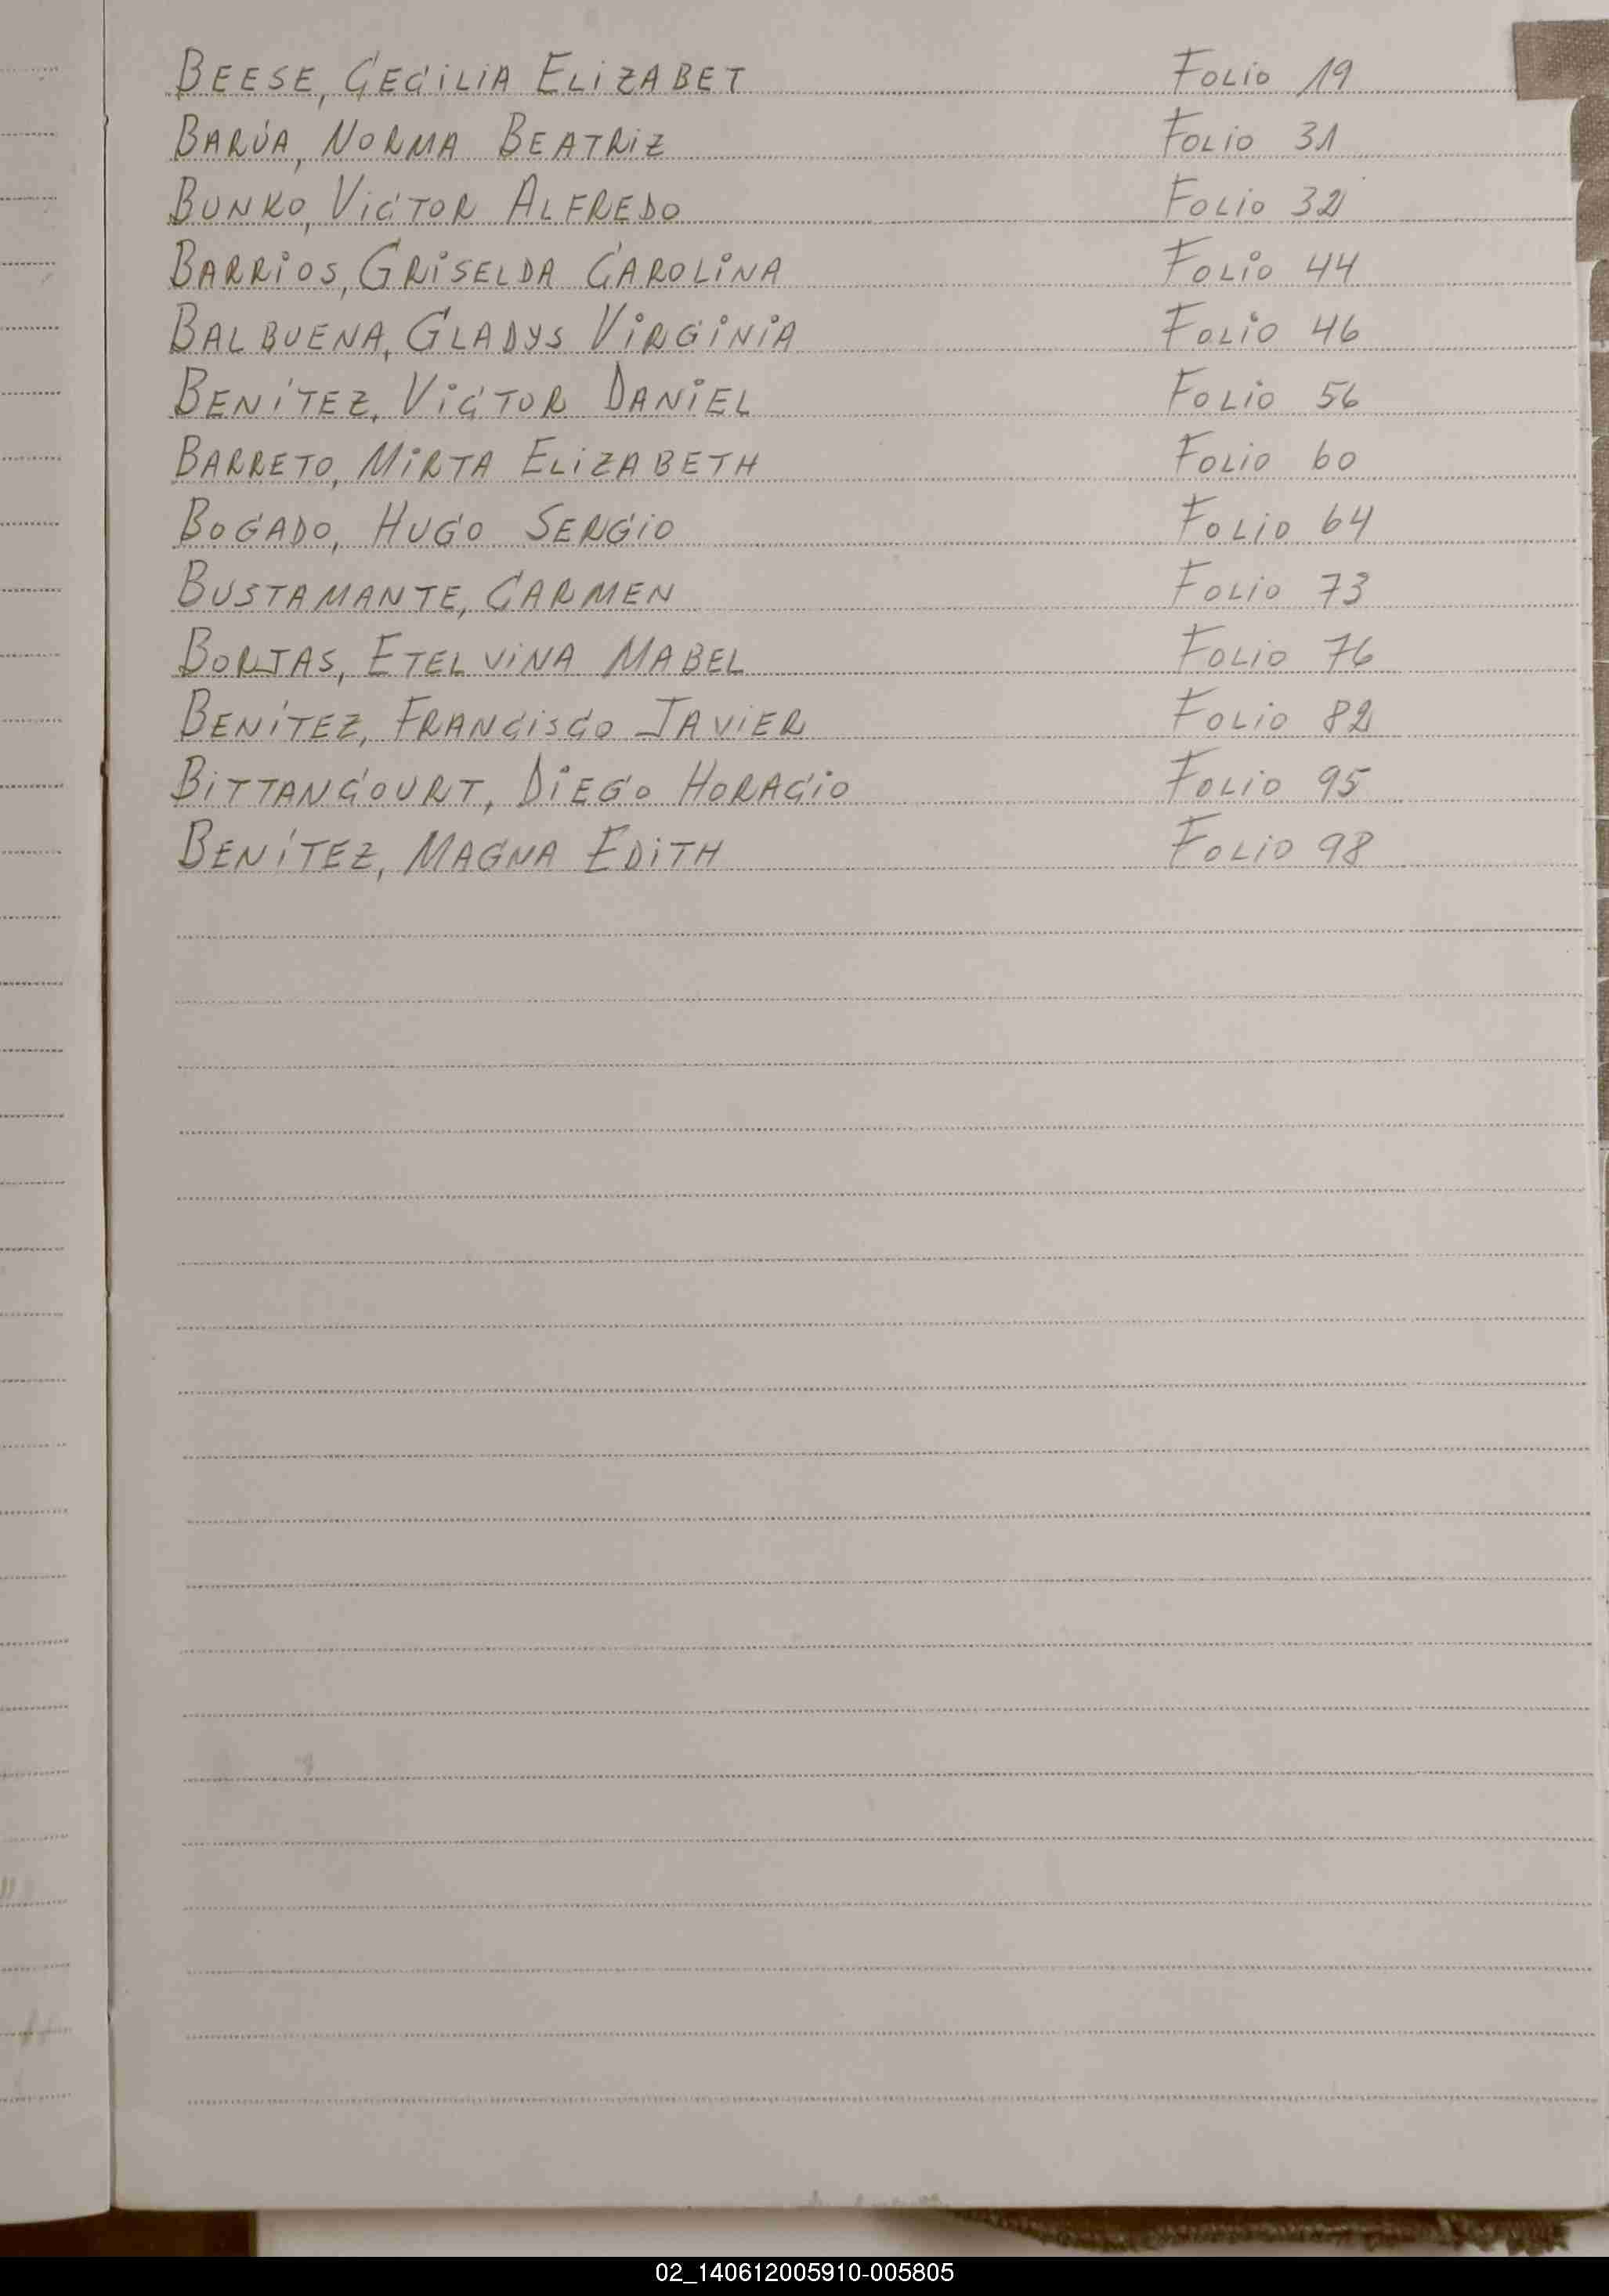 BEESE, CECILIA ELIZABET Folio 19
BARÚA, NORMA BEATRIZ Folio 31
BUNKO, VICTOR ALFREDO Folio 32
BARRIOS, GRISELDA CAROLINA Folio 44
BALBUENA, GLADYS VIRGINIA Folio 46
BENÍTEZ, VICTOR DANIEL Folio 56
BARRETO, MIRTA ELIZABETH Folio 60
BOGADO, HUGO SERGIO Folio 64
BUSTAMANTE, CARMEN Folio 73
BORJAS, ETELVINA MABEL Folio 76
BENÍTEZ, FRANCISCO JAVIER Folio 82
BITTANCOURT, DIEGO HORACIO Folio 95
BENÍTEZ, MAGNA EDITH Folio 98
02_140612005910-005805